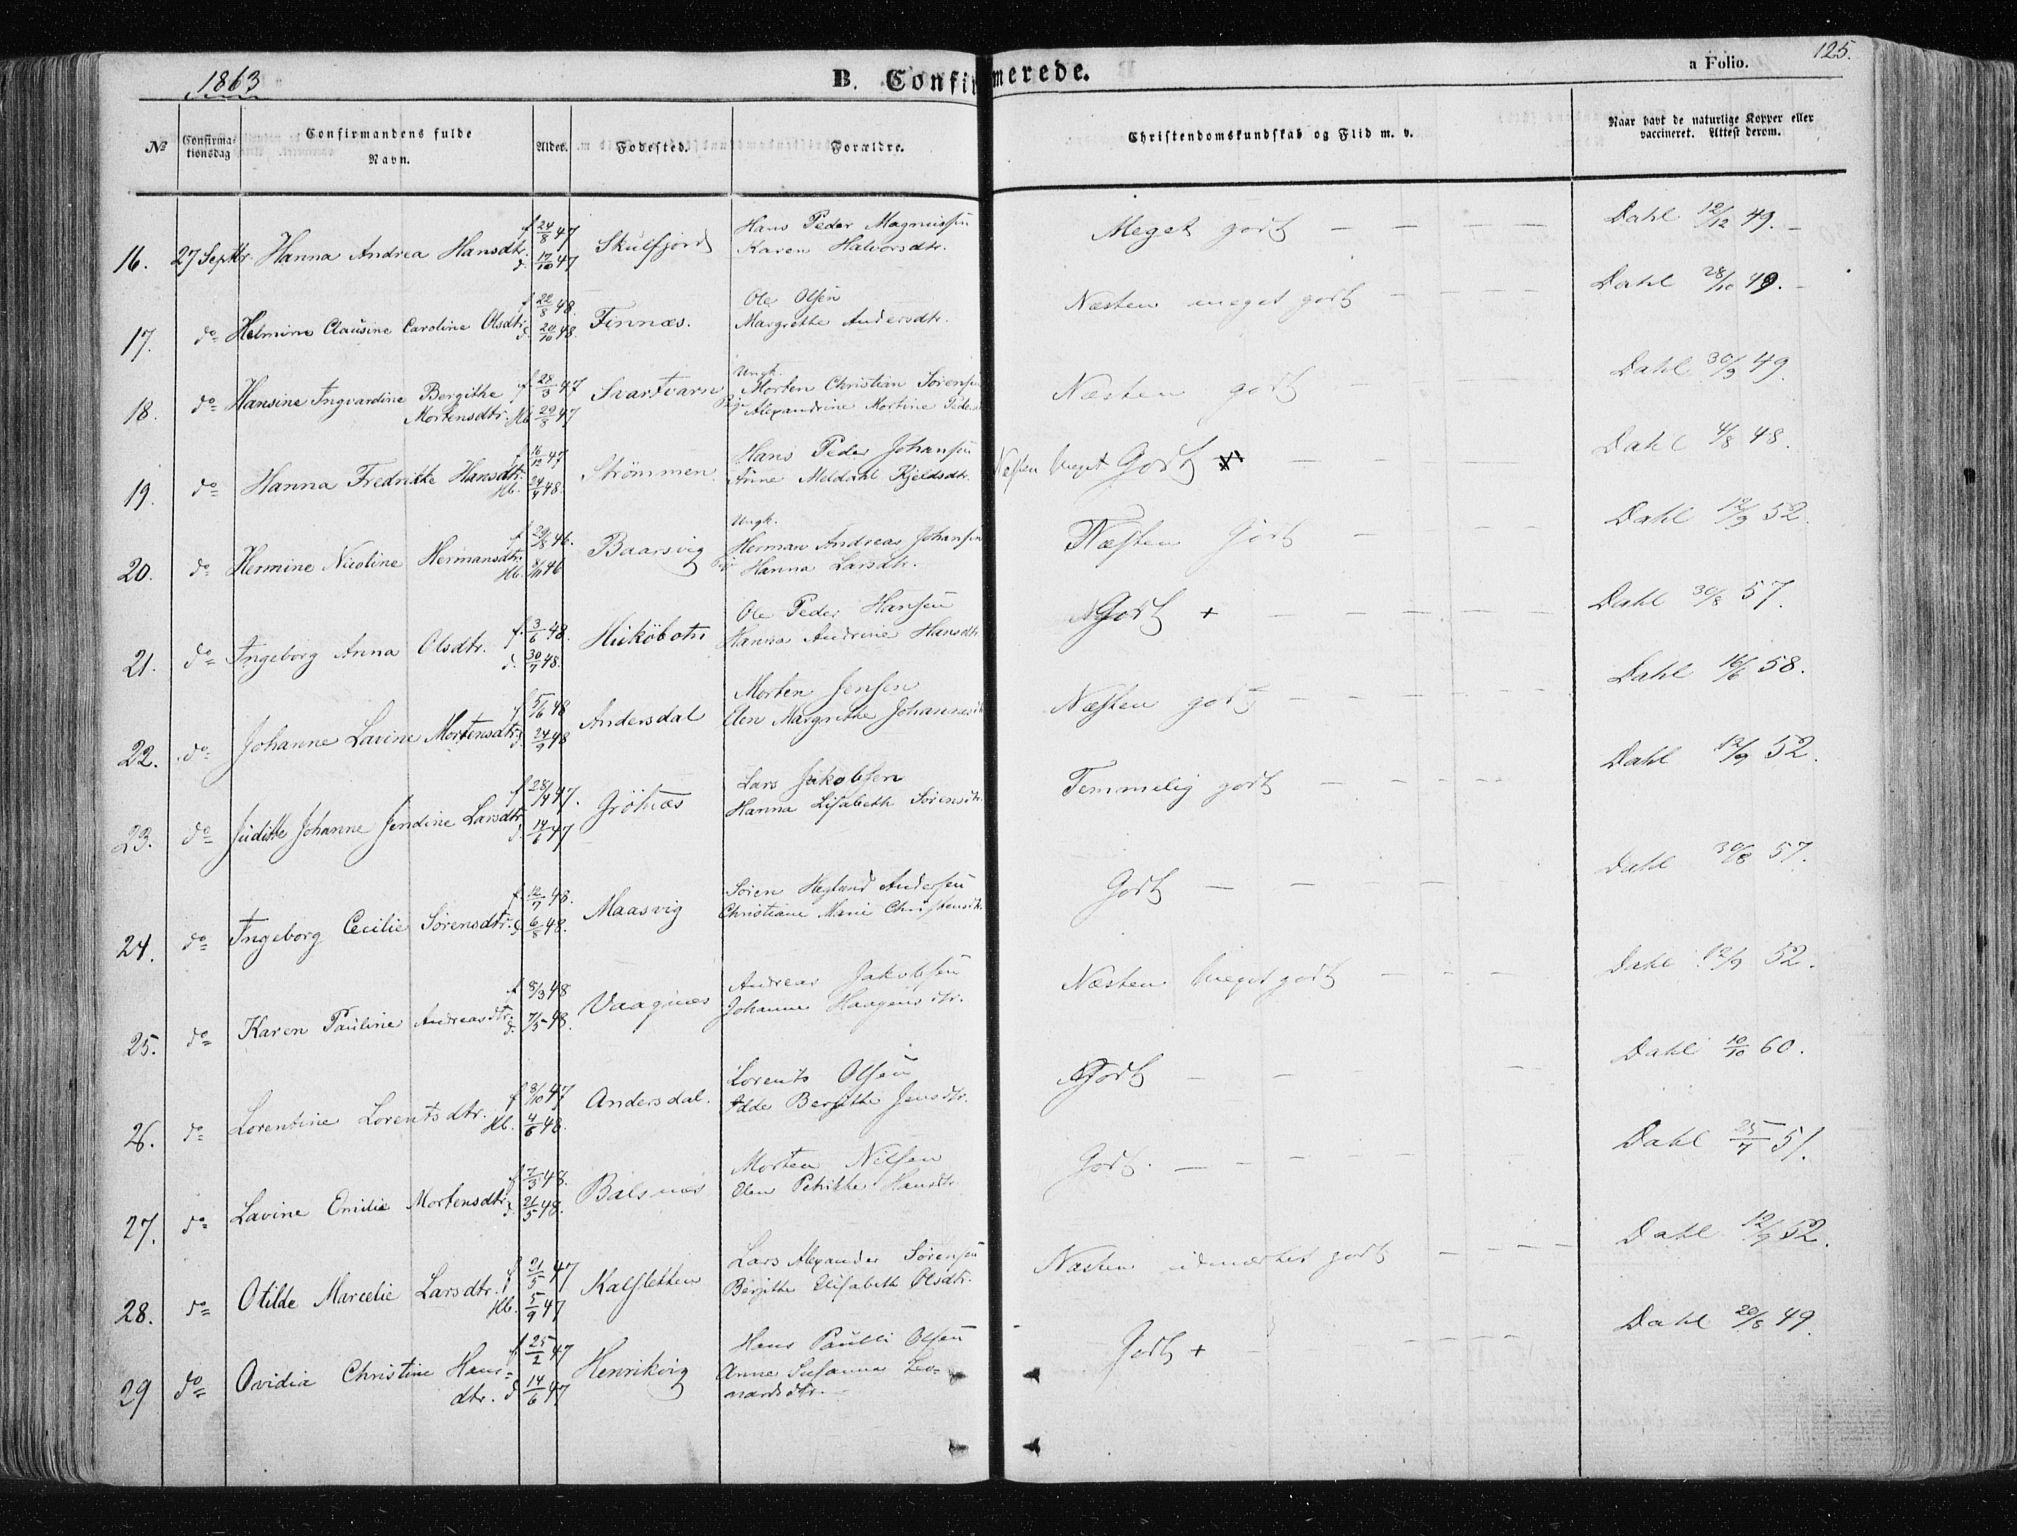 1863
B. Confirmerede.
a Folio.
125.
№
Confirmationsdag
Confirmandens fulde Navn.
Alder.
Fødested.
Forældre.
Christendomskundskab og Flid m. v.
Naar havt de naturlige Kopper eller vaccineret. Attest derom.
16. 27 Septbr. Hanna Andrea Hansdtr. f. 24/8 47 d. 17/10 47 Skulsfjord Hans Peder Magnussen Karen Halvorsdtr. Meget godt — — — — Dahl 12/12 49.
17. do Helmine Clausine Caroline Olsdtr. f. 22/8 48. d. 20/10 48. Finnæs. Ole Olsen Margrethe Andersdtr. Næsten meget godt — — — — Dahl 28/10 49.
18. do Hansine Ingvardine Bergithe Mortensdtr. f. 28/3 47 Hb. 29/8 47 Svartvarse Ungk. Morten Christian Sørensen Pig. Alexandrine Mortine Peders Næsten godt — — — Dahl 30/9 49.
19. do Hanna Fredrikke Hansdtr. f. 16/12 47 Hb. 24/4 48. Strømmen Hans Peder Johansen Anne Meldahl Kjeldsdtr. Næsten Meget Godt — — — Dahl 4/8 48.
20. do Hermine Nicoline Hermansdtr. f. 29/8 46. Hb. 46 Baarsvig Ungk. Herman Andreas Johansen Pig. Hanna Larsdtr. Næsten Godt — — — Dahl 12/9 52.
21. do Ingeborg Anna Olsdtr. f. 3/6 48. d. 30/7 48. Ole Peder Hansen Hanna Andrine Hansdtr. Godt + — — — Dahl 30/8 57.
22. do Johanne Lavine Mortensdtr. f. 5/6 48 d. 24/9 48 Andersdal Morten Jensen Elen Margrethe Johannesdtr. Næsten godt — — — Dahl 16/6 58.
23. do Judithe Johanne Jendine Larsdtr. f. 28/4 47. d. 14/6 47 Grötnæs Lars Jakobsen Hanna Lisabeth Sörensdtr. Temmelig godt — — — Dahl 12/9 52.
24. do Ingeborg Cecilie Sørensdtr. f. 12/7 48. d. 6/8 48. Maasvig Søren Hegland Andersen Christiane Marie Christensdtr. Godt — — — Dahl 30/8 57.
25. do Karen Pauline Andreasdtr. f. 8/3 48 d. 7/5 48. Vaagnes Andreas Jakobsen Johanne Haagensdtr. Næsten Meget godt — — — Dahl 12/9 52.
26. do Lorentine Lorentsdtr. f. 8/10 47 Hb. 4/6 48. Andersdal. Lorents Olsen Bergithe Jensdtr. Godt — — — Dahl 10/10 60.
27. do Lavine Emilie Mortensdtr. f. 7/3 48. d. 21/5 48. Balsnæs Morten Nilsen Elen Petrikke Hansdtr. Godt. — — — Dahl 25/7 51.
28. do Otilde Marcelie Larsdtr. f. 21/5 47 Hb. 5/9 47 Kalsletten Lars Alexander Sörensen Bergithe Elisabeth Olsdtr. Næsten udmærket godt — — — Dahl 12/9 52.
29 do Ovidia Christine Hans= dtr. f. 25/2 47 d. 14/6 47 Henrikvig Hans Paulli Olsen Anne Susanna Leo= nardsdtr. Godt + — — Dahl 20/8 49.